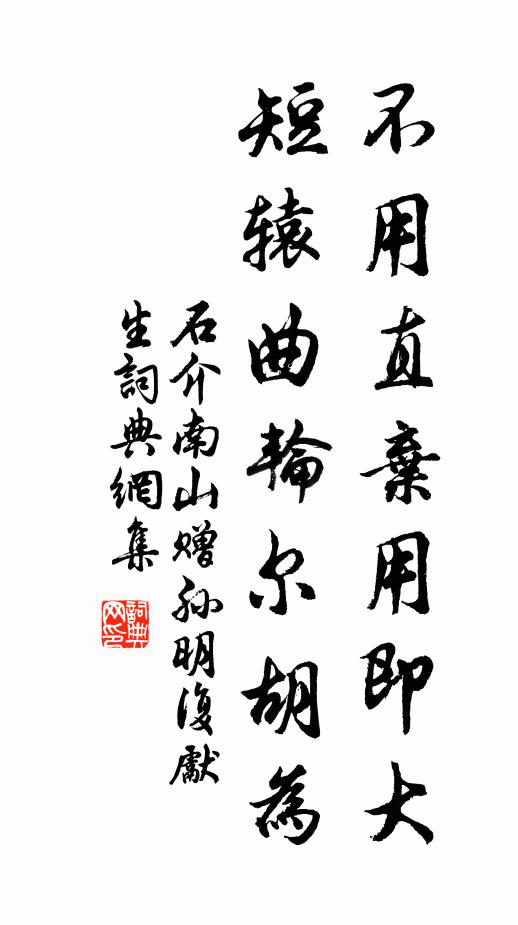 不用直棄用即大
短辕曲輪尔胡為
石介南山赠孙明復獻
生詞典網集
詞典网印